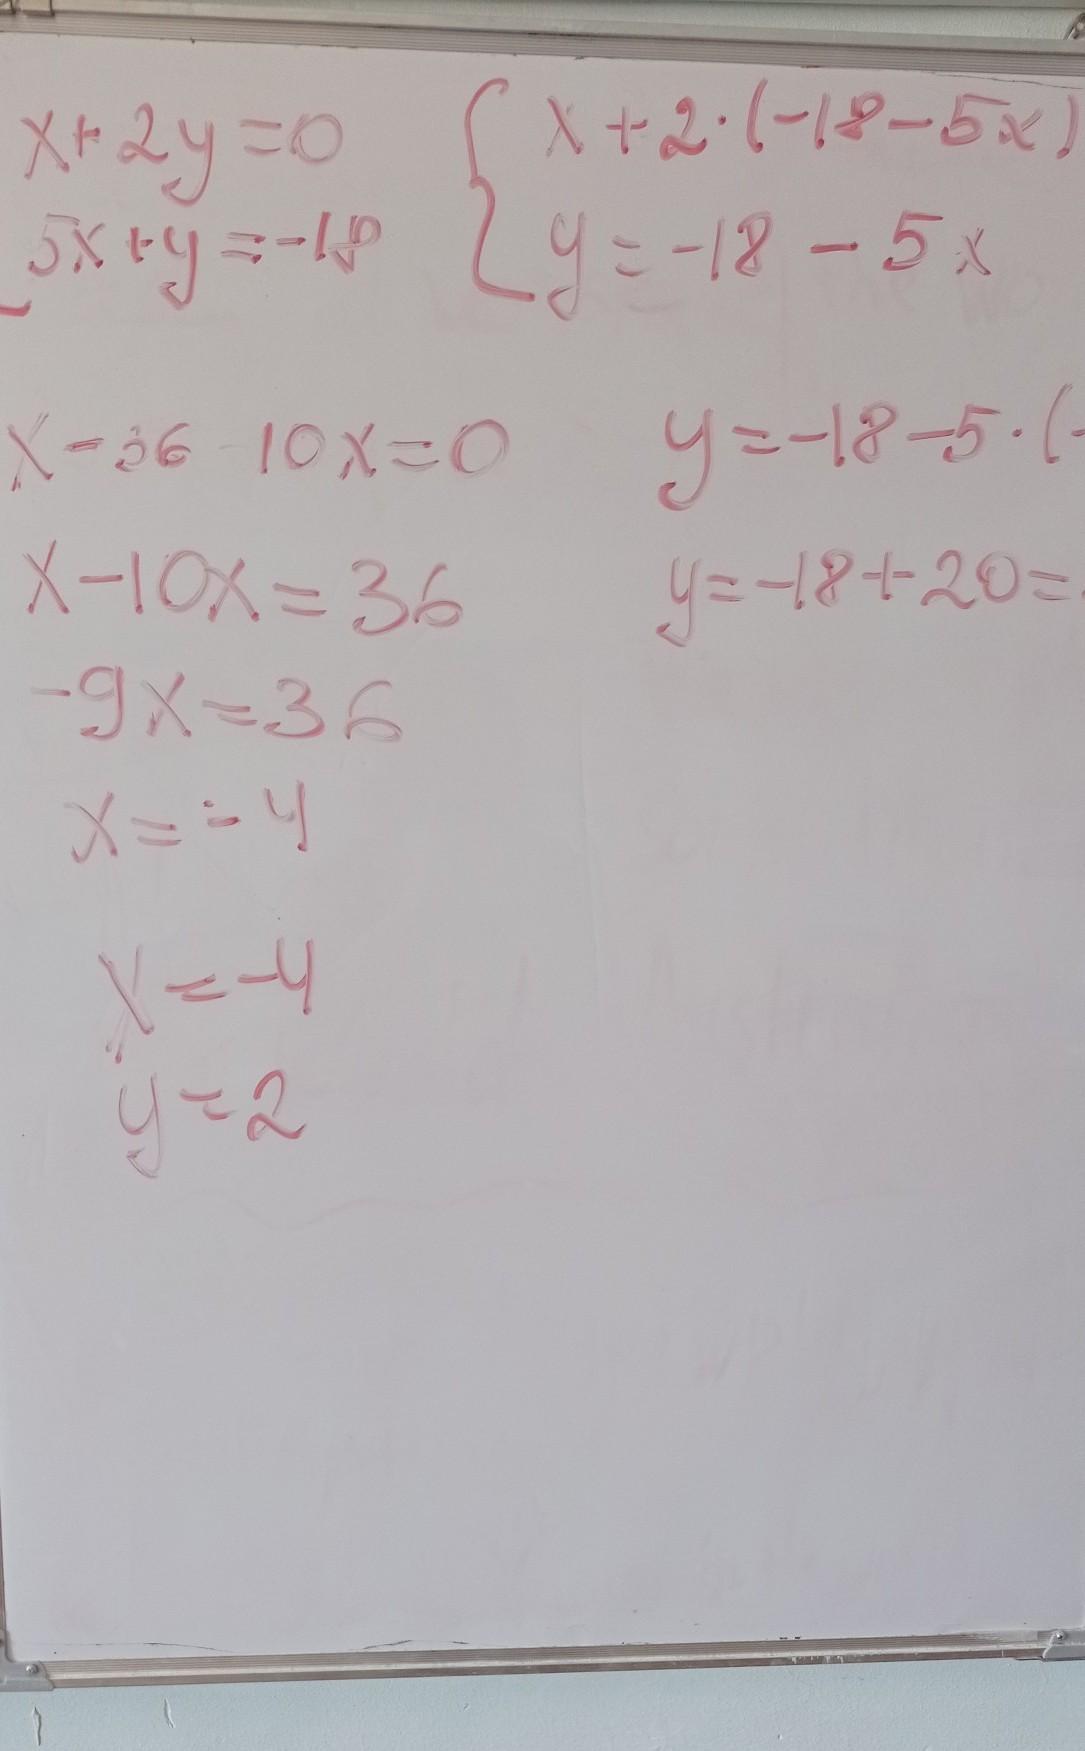 x+2y=0
5x+y=-18
x+2·(-18-5x)
y=-18-5x
x-36 10x=0
x-10x=36
-9x=36
x=-4
y=-18-5·(-
y=-18+20=
x=-4
y=2